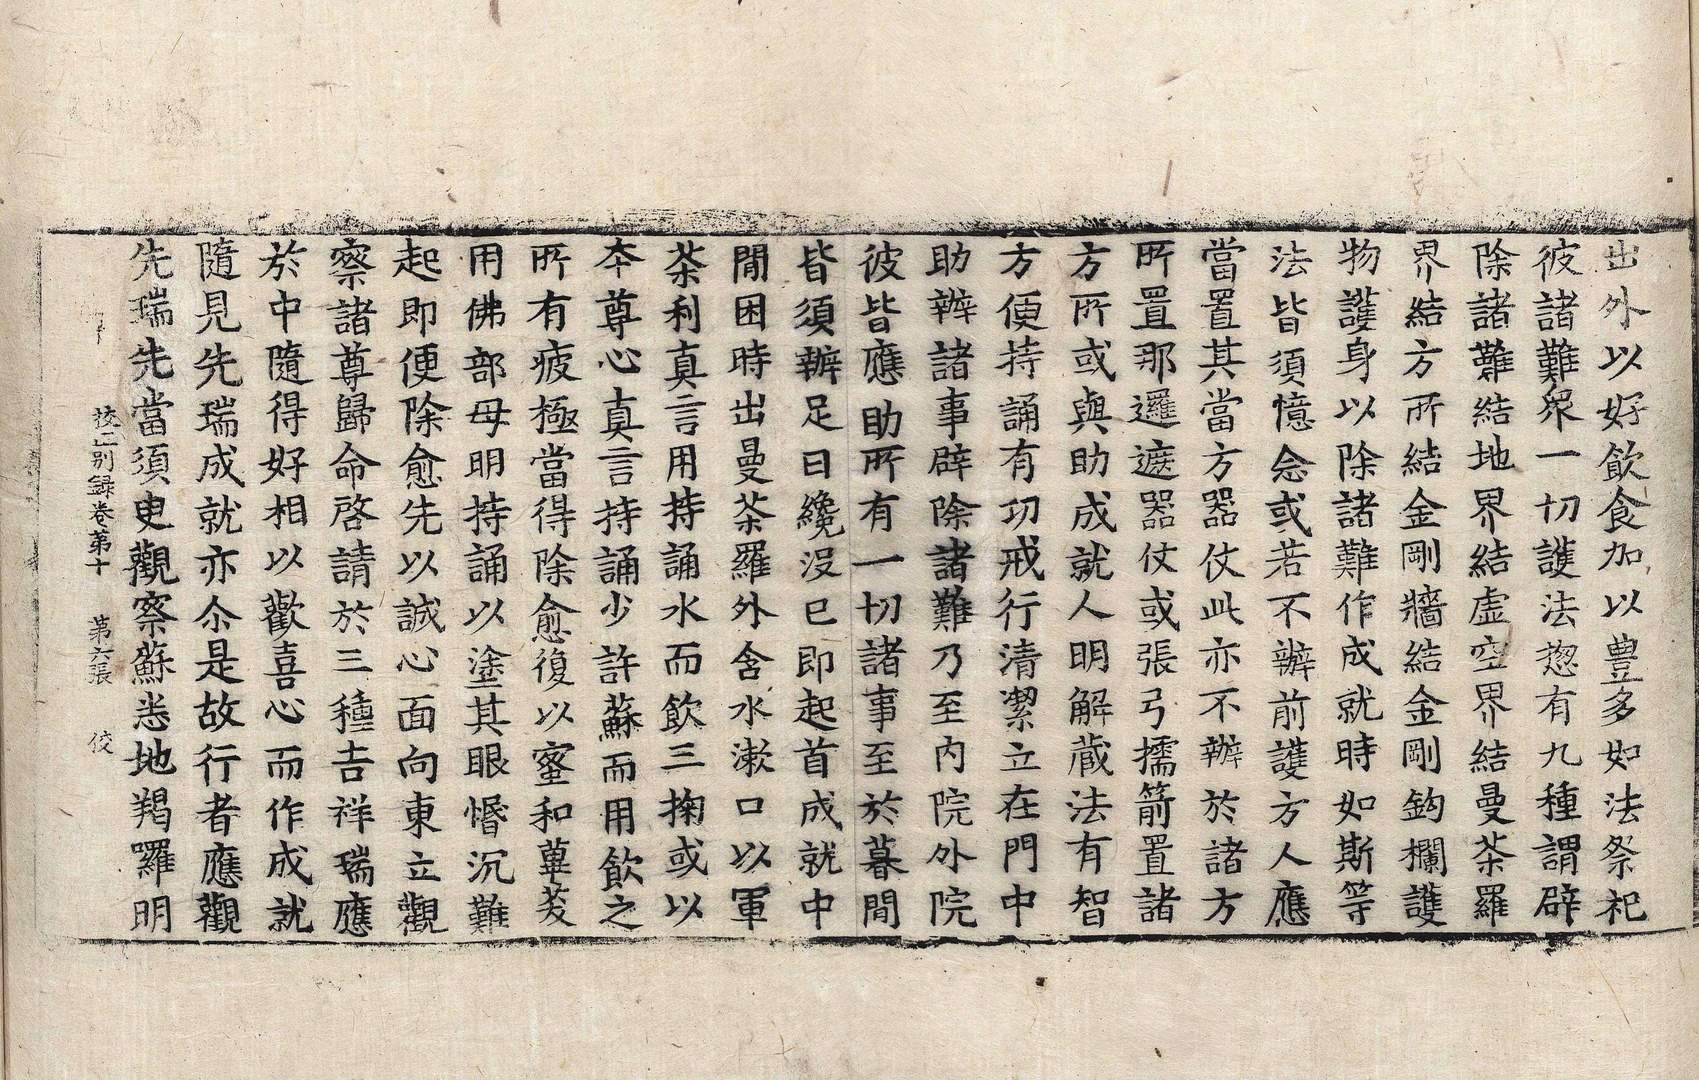 出外以好飮食加以豊多如法祭祀
彼諸難衆一切護法惣有九種謂辟
除諸難結地界結虛空界結曼荼羅
界結方所結金剛牆結金剛鈎欄護
物護身以除諸難作成就時如斯等
法皆須憶念或若不辦前護方人應
當置其當方器仗此亦不辦於諸方
所置那邏遮器仗或張弓擩箭置諸
方所或與助成就人明解藏法有智
方便持誦有功戒行清潔立在門中
助辦諸事辟除諸難乃至內院外院
彼皆應助所有一切諸事至於暮間
皆須辦足日纔沒已即起首成就中
間困時出曼荼羅外含水漱口以軍
荼利真言用持誦水而飮三掬或以
本尊心真言持誦少許蘇而用飮之
所有疲極當得除愈復以蜜和蓽茇
用佛部母明持誦以塗其眼惛沉難
起即便除愈先以誠心面向東立觀
察諸尊歸命啓請於三種吉祥瑞應
於中隨得好相以歡喜心而作成就
隨見先瑞成就亦尒是故行者應觀
先瑞先當須更觀察蘇悉地羯囉明
校正別錄卷第十 第六張 佼